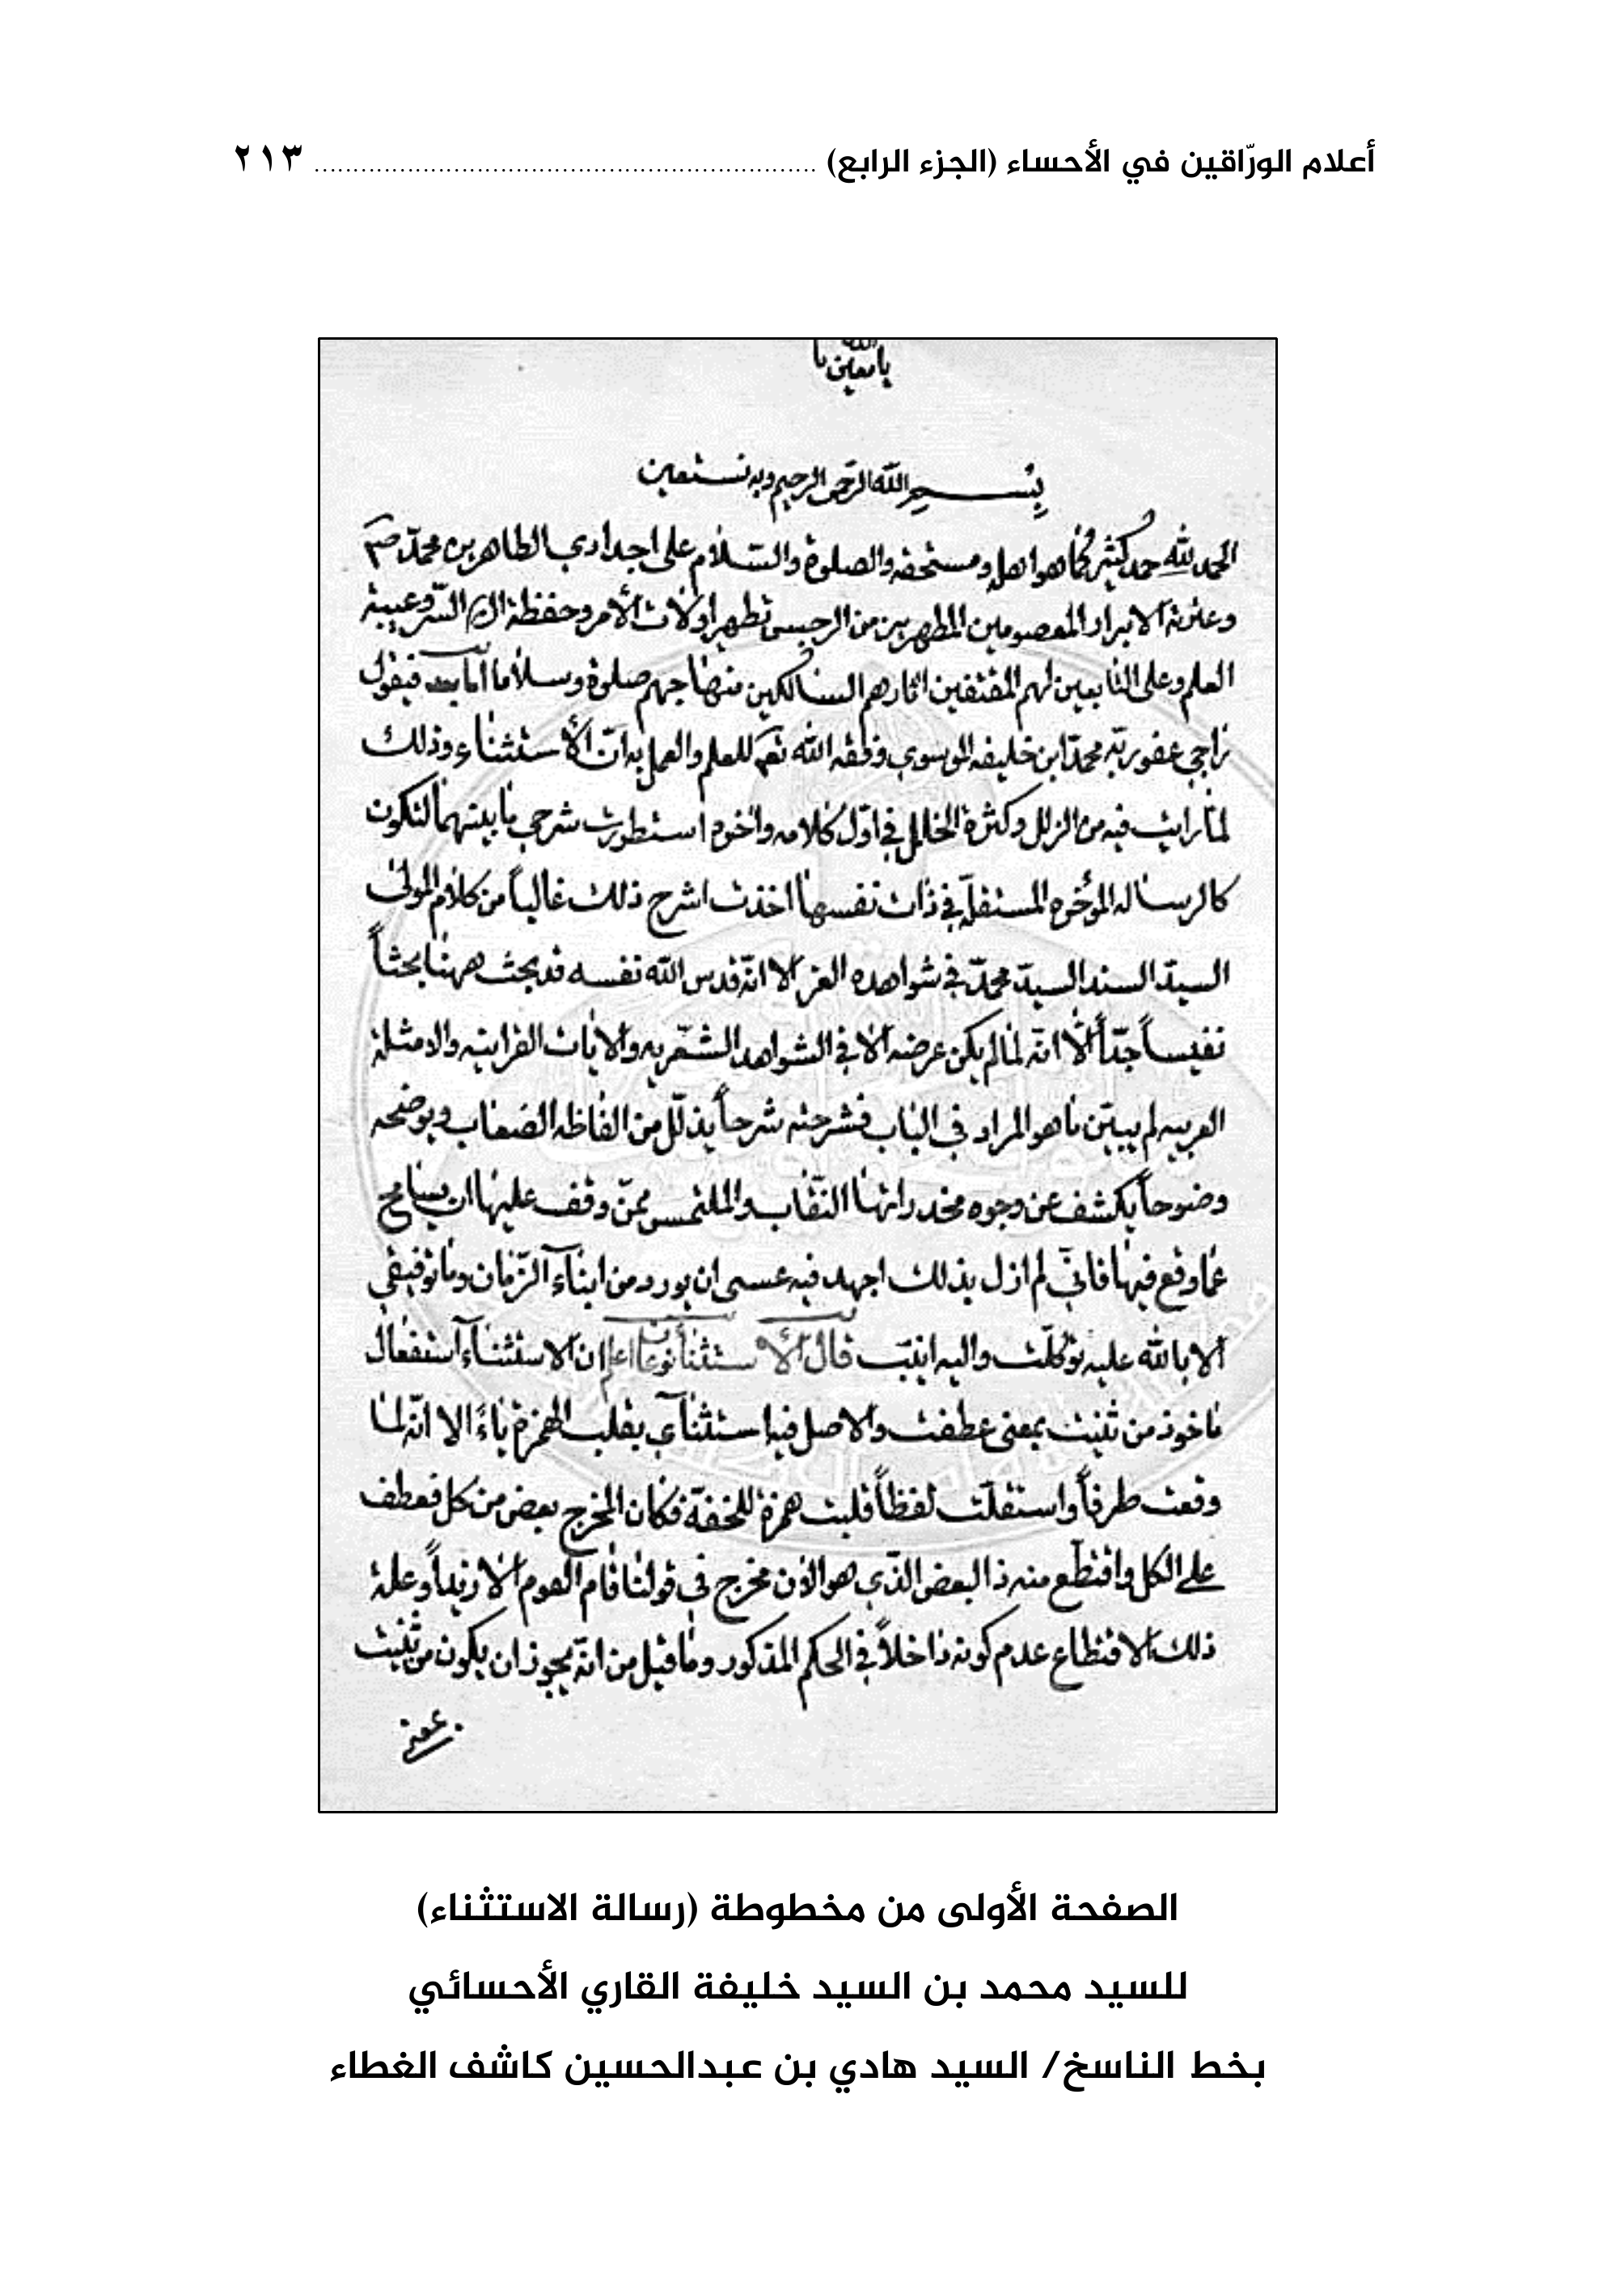 أعلام الورّاقين في الأحساء (الجزء الرابع) ................................................................ ٢١٣
يا معين يا الله
بسم الله الرحمن الرحيم وبه نستعين
الحمد لله حمد كثير كما هو اهله ومستحقه والصلوة والسّلام على اجدادي الطاهرين محمّد ص
وعترته الابرار المعصومين المطهرين من الرجس تطهيرا ولات الأمر وحفظة السّر وعيبة
العلم وعلى التابعين لهم المقتفين اثارهم السالكين منهاجهم صلوة وسلاما امّا بعد فيقول
راجي عفو ربّه محمّد ابن خليفه الموسوي وفقه الله تع للعلم والعمل به انّ الأستثناء وذلك
لمّا رايت فيه من الزلل وكثرة الخلل في اوّل كلامه واخره استطورت شرحي ما بينهما لتكون
كالرساله المؤخره المستقلّة في ذات نفسها اخذت اشرح ذلك غالباً من كلام المولى
السيّد السند السيّد محمّد في شواهده الغر الا انّه قدس الله نفسه قد بحث ههنا بحثاً
نفيساً جدّاً الّا انّه لما لم يكن غرضه الا في الشواهد الشعريه والايات القرانيه والامثلة
العربيه لم يبيّن ما هو المراد في الباب فشرحته شرحاً يذلّل من الفاظه الصعاب ويوضحه
وضوحاً يكشف عن وجوه مخدراتها النقّاب والملتمس ممّن وقف عليها ان يسامح
عمّا وقع فيها فانّي لم ازل بذلك اجهد فيه عسى ان يورد من ابناء الزّمان وما توفيقي
الا بالله عليه توكّلت واليه انيب قال الأستثنا نوعان اعلم ان الاستثناء استفعال
ماخوذ من ثنيت بمعنى عطفت والاصل فيه استثناي بقلب الهمزة ياءً الا انّه لما
وقعت طرفاً واستثقلت لفظاً قلبت همزة للخفّة فكان المخرج بعض من كل فعطف
على الكل واقتطع منه ذا البعض الّذي هو الان مخرج في قولنا قام القوم الا زيداً وعلة
ذلك الاقتطاع عدم كونه داخلاً في الحكم المذكور وما قيل من انّه يجوز ان يكون من ثنيت
الصفحة الأولى من مخطوطة (رسالة الاستثناء)
للسيد محمد بن السيد خليفة القاري الأحسائي
بخط الناسخ/ السيد هادي بن عبدالحسين كاشف الغطاء